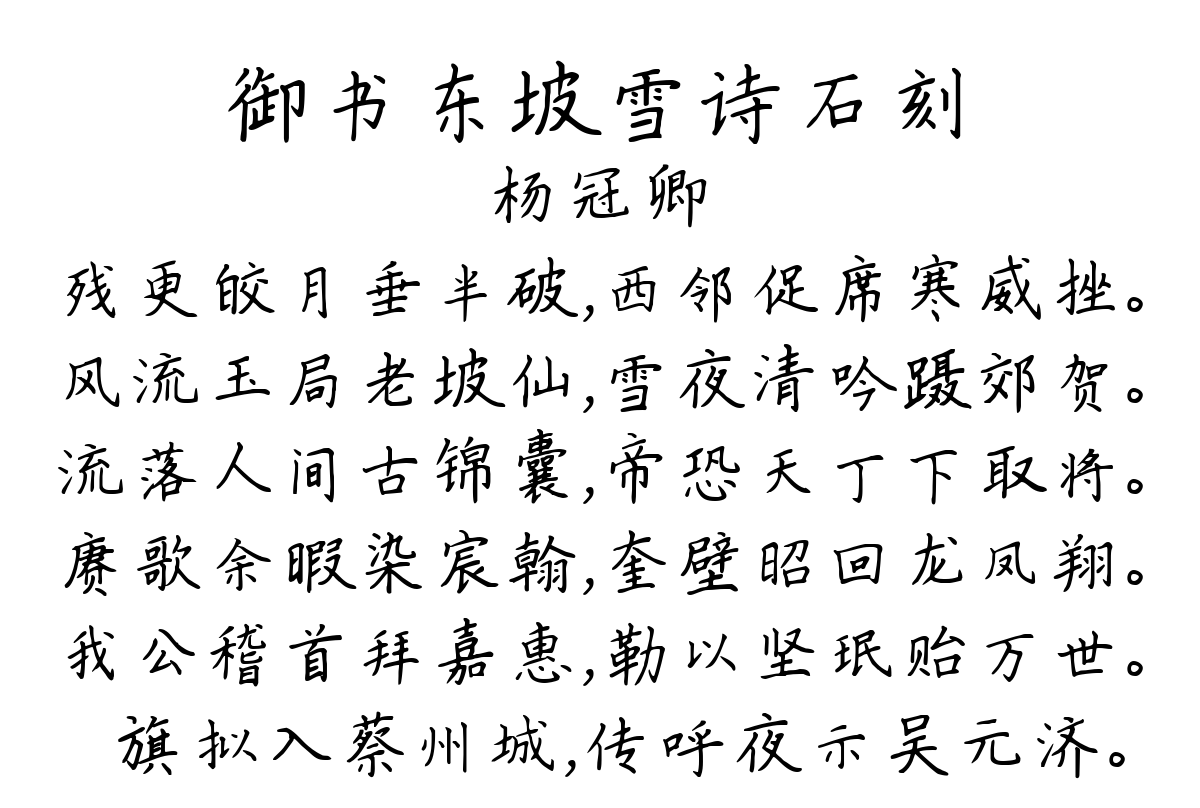 御书东坡雪诗石刻
杨冠卿
残更皎月垂半破,西邻促席寒威挫。
风流玉局老坡仙,雪夜清吟蹑郊贺。
流落人间古锦囊,帝恐天丁下取将。
赓歌余暇染宸翰,奎壁昭回龙凤翔。
我公稽首拜嘉惠,勒以坚珉贻万世。
旗拟入蔡州城,传呼夜示吴元济。